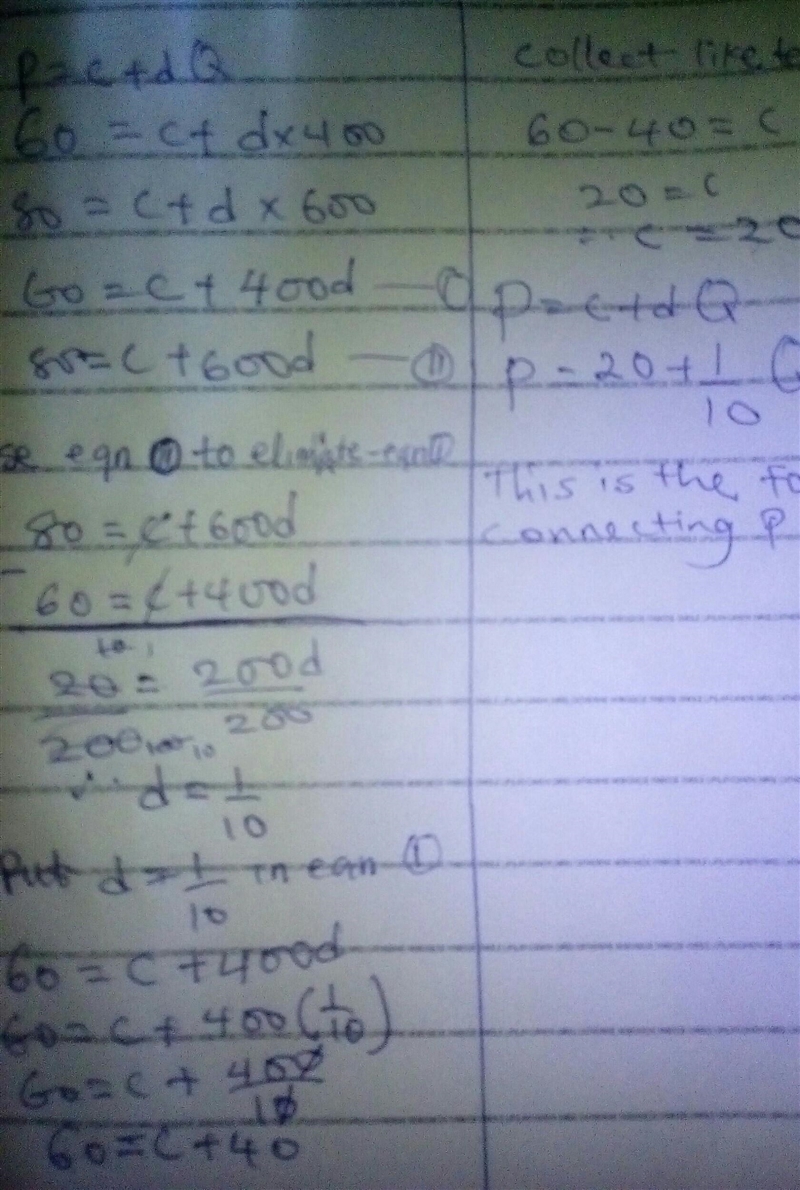 P=c+dQ
60 = c+ d×400
80 = c+d × 600
60 = c + 400d — (I)
80 = c + 600d — (II)
se eqn (II) to
80 = c+600d
- 60 = c+400d
20 = 200d
200 200
∴ d = 1
10
Put d = 1 in eqn (I)
10
60 = c +400d
60 = c + 400(1/10)
60 = c + 400
10
60 = c + 40
collect like te
60-40 = c
20 = c
∴ c = 20
P = c+dQ
P = 20 + 1 Q
10
This is the fo
connecting P